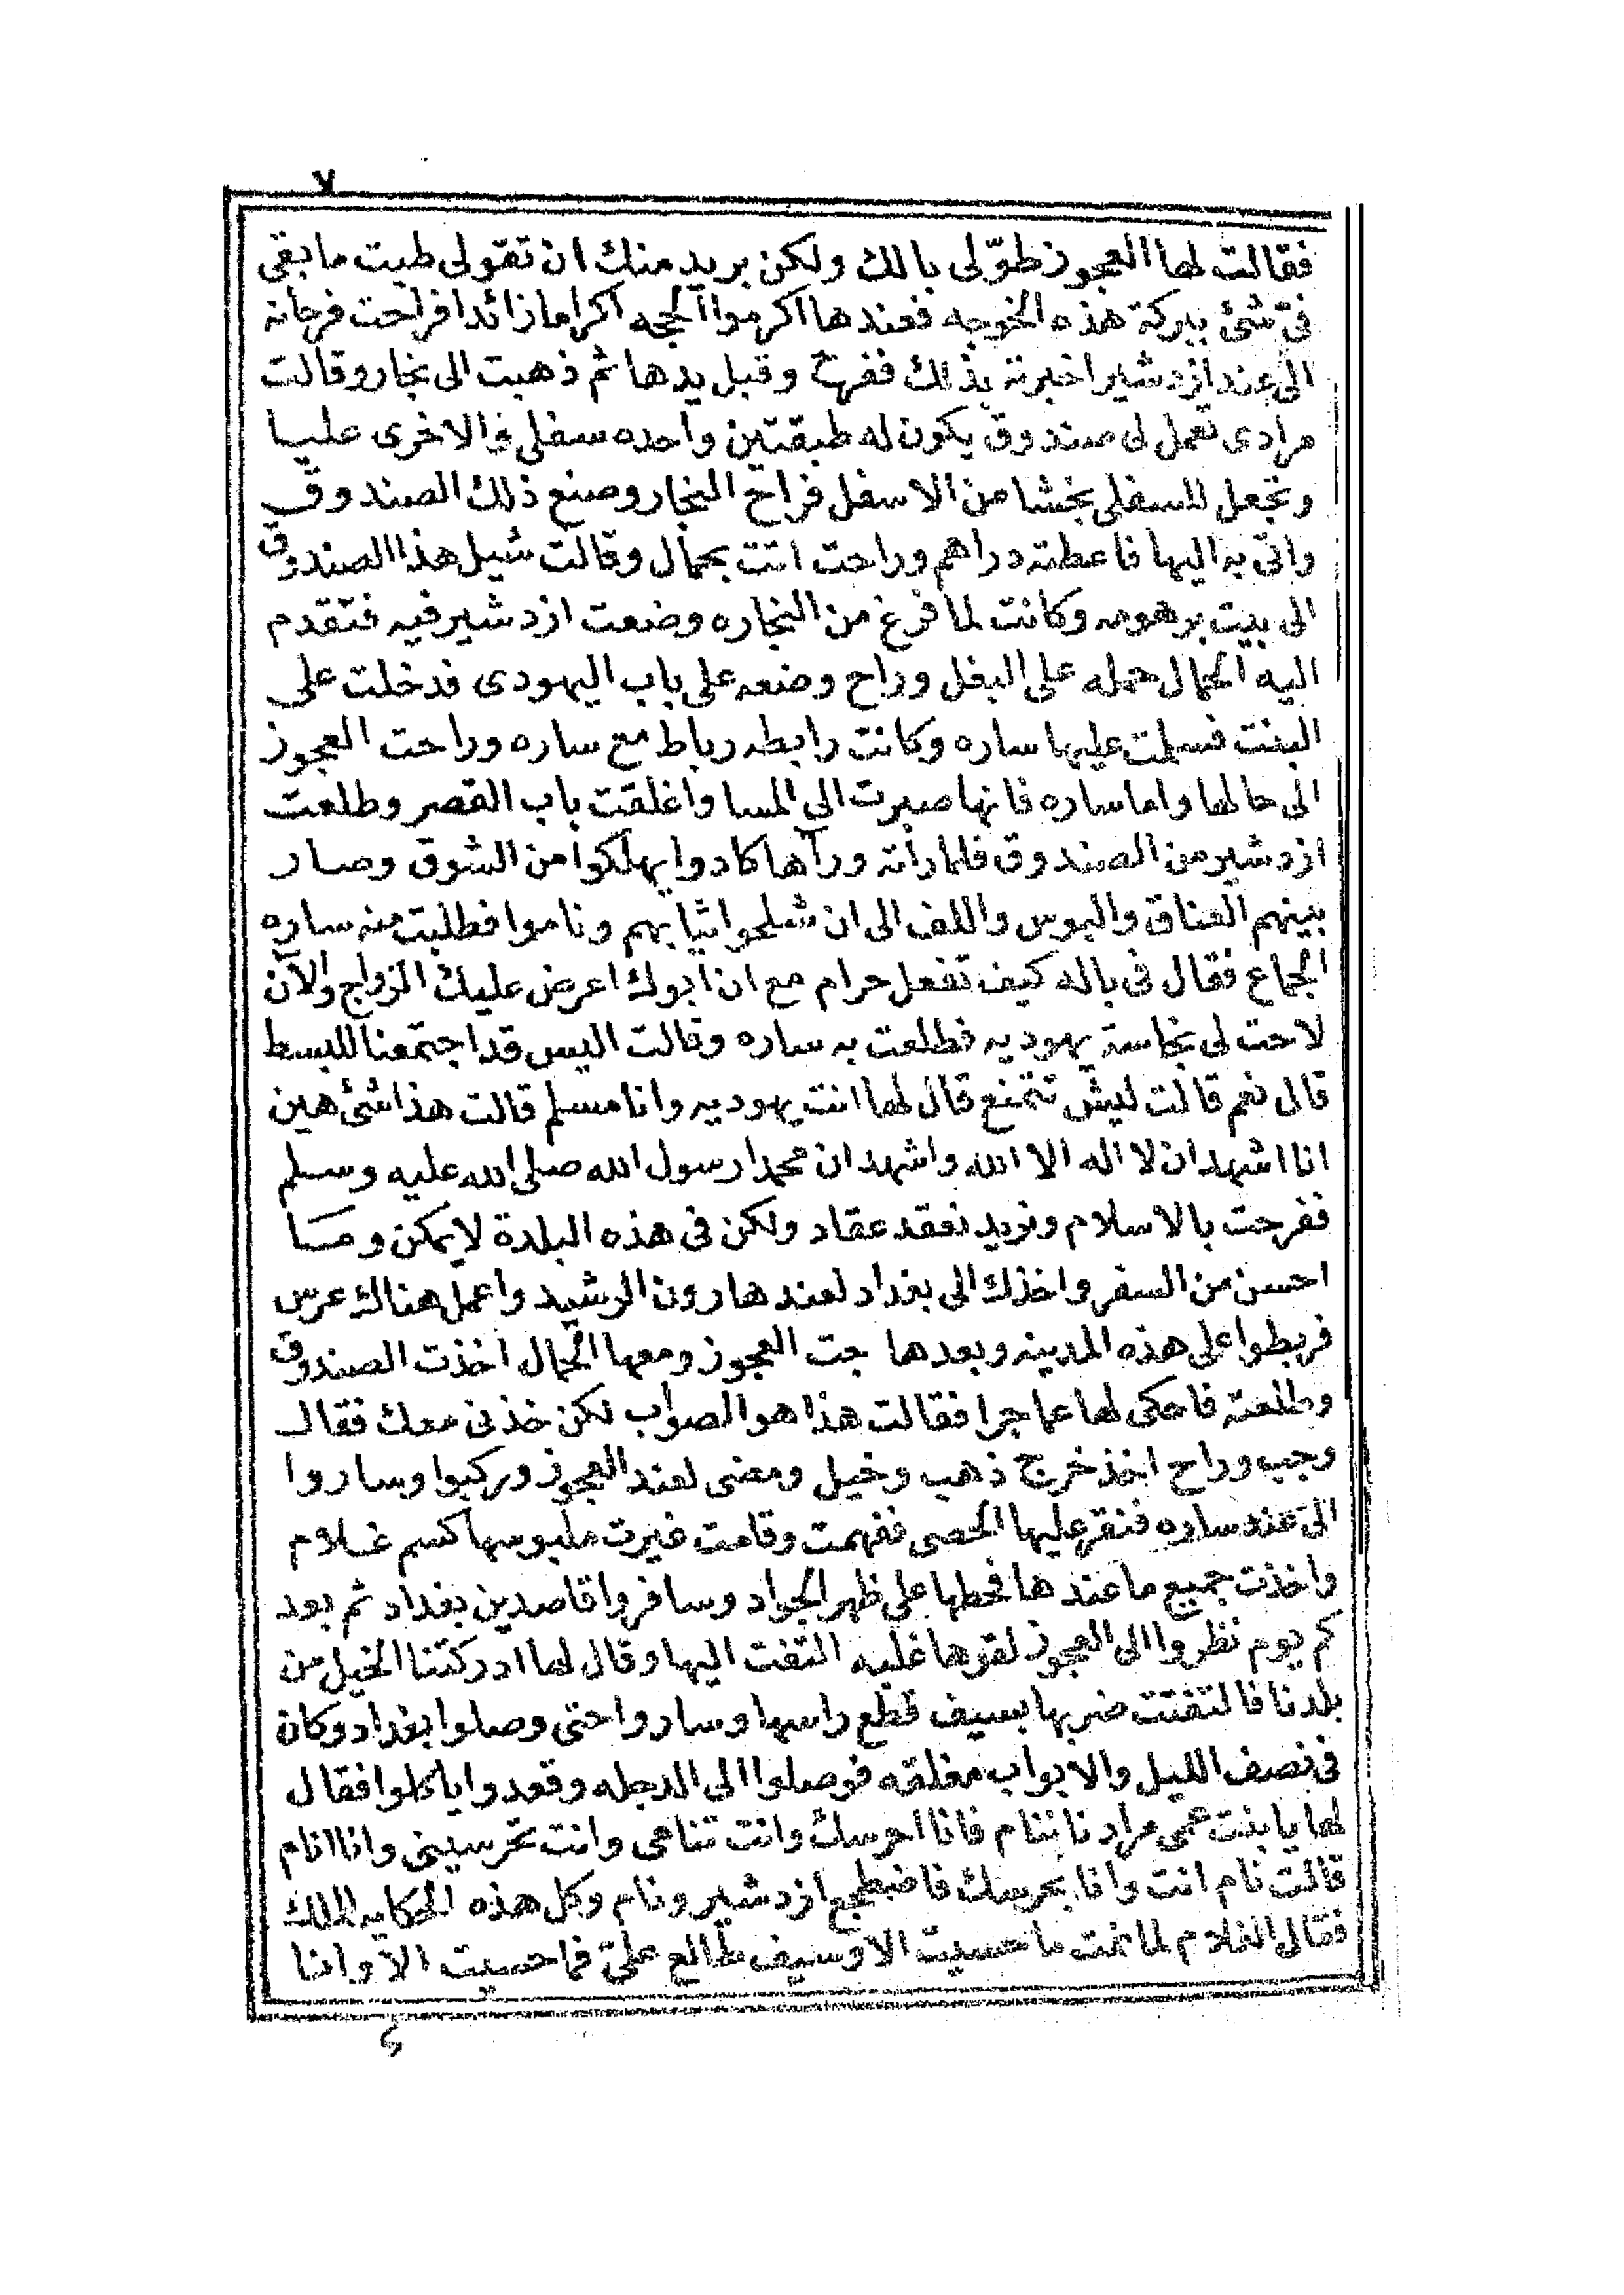 ٧
فقالت لها العجوز طوّلى بالك ولكن بريد منك ان تقولى طيبت ما بقى
فىّ شئ ببركة هذه الخوجه فعندها اكرموا الحجه اكراما زائدا فراحت فرحانه
الى عند ازدشير اخبرته بذلك ففرح وقبل يدها ثم ذهبت الى نجار وقالت
مرادى تعمل لى صندوق يكون له طبقتين واحده سفلى والاخرى عليا
وتجعل للسفلى بخشا من الاسفل فراح النجار وصنع ذلك الصندوق
واتى به اليها فاعطته دراهم وراحت اتت بجمال وقالت شيل هذا الصندوق
الى بيت برهومه وكانت لما فرغ من النجاره وضعت ازدشير فيه فتقدم
اليه الجمال حمله على البغل وراح وضعه على باب اليهودى فدخلت على
البنت فسلمت عليها ساره وكانت رابطه رباط مع ساره وراحت العجوز
الى حالها واما ساره فانها صبرت الى المسا واغلقت باب القصر وطلعت
ازدشير من الصندوق فلما رأته ورآها كادوا يهلكوا من الشوق وصار
بينهم العناق والبوس واللف الى ان شلحوا ثيابهم وناموا فطلبت منه ساره
الجماع فقال فى باله كيف تفعل حرام مع ان ابوك اعرض عليك الزواج والآن
لاحت لى نجاسة يهوديه فطلعت به ساره وقالت اليس قد اجتمعنا للبسط
قال نعم قالت ليش تتمنع قال لها انت يهوديه وانا مسلم قالت هذا شئ هين
انا اشهد ان لا اله الا الله واشهد ان محمدا رسول الله صلى الله عليه وسلم
ففرحت بالاسلام ونريد نعقد عقاد ولكن فى هذه البلدة لا يمكن وما
احسن من السفر واخذك الى بغداد لعند هارون الرشيد واعمل هناك عرس
فربطوا على هذه المدينه وبعدها جت العجوز ومعها الجمال اخذت الصندوق
وطلعته فاحكى لها عما جرا فقالت هذا هو الصواب لكن خذنى معك فقال
وجب وراح اخذ خرج ذهب وخيل ومضى لعند العجوز وركبوا وساروا
الى عند ساره فنقر عليها الحصى ففهمت وقامت غيرت ملبوسها كسم غلام
واخذت جميع ما عندها فحطها على ظهر الجواد وسافروا قاصدين بغداد ثم بعد
كم يوم نظروا الى العجوز لقوها غلبه التفت اليها وقال لها ادركتنا الخيل من
بلدنا فالتفتت ضربها بسيف قطع راسها وساروا حتى وصلوا بغداد وكان
فى نصف الليل والابواب مغلقه فوصلوا الى الدجله وقعدوا ياكلوا فقال
لها يا بنت عمى مرادنا ننام فانا احرسك وانت تنامى وانت تحرسينى وانا انام
قالت نام انت وانا بحرسك فاضطجع ازدشير ونام وكل هذه الحكايه للملك
فقال الغلام لما نمت ما حسيت الا وسيف طالع علىّ فما حسيت الا وانا